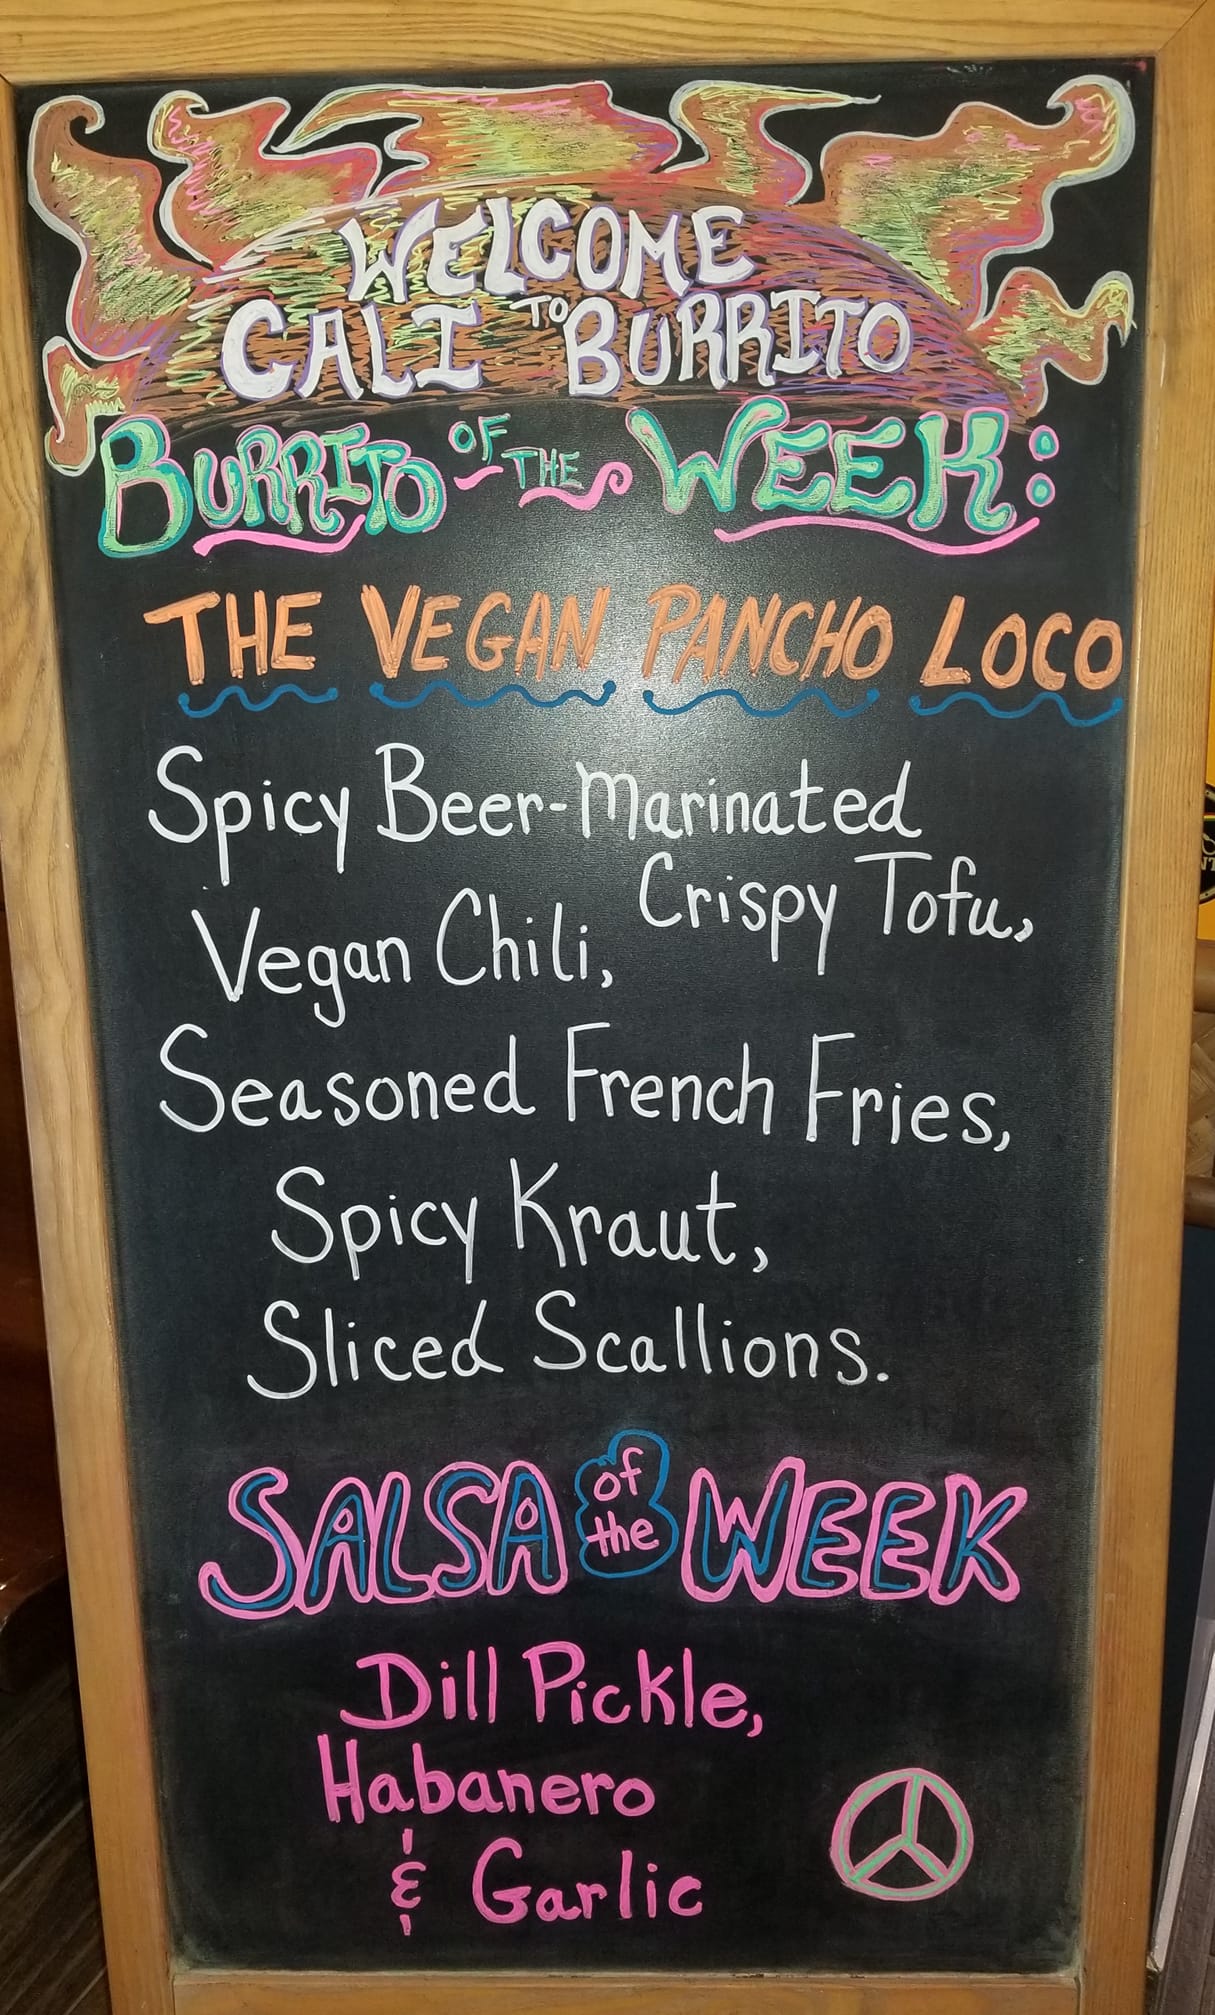 WELCOME
TO
CALI BURRITO
BURRITO OF THE WEEK:
THE VEGAN PANCHO LOCO
Spicy Beer-Marinated
Crispy Tofu,
Vegan Chili,
Seasoned French Fries,
Spicy Kraut,
Sliced Scallions.
SALSA of the WEEK
Dill Pickle,
Habanero
& Garlic